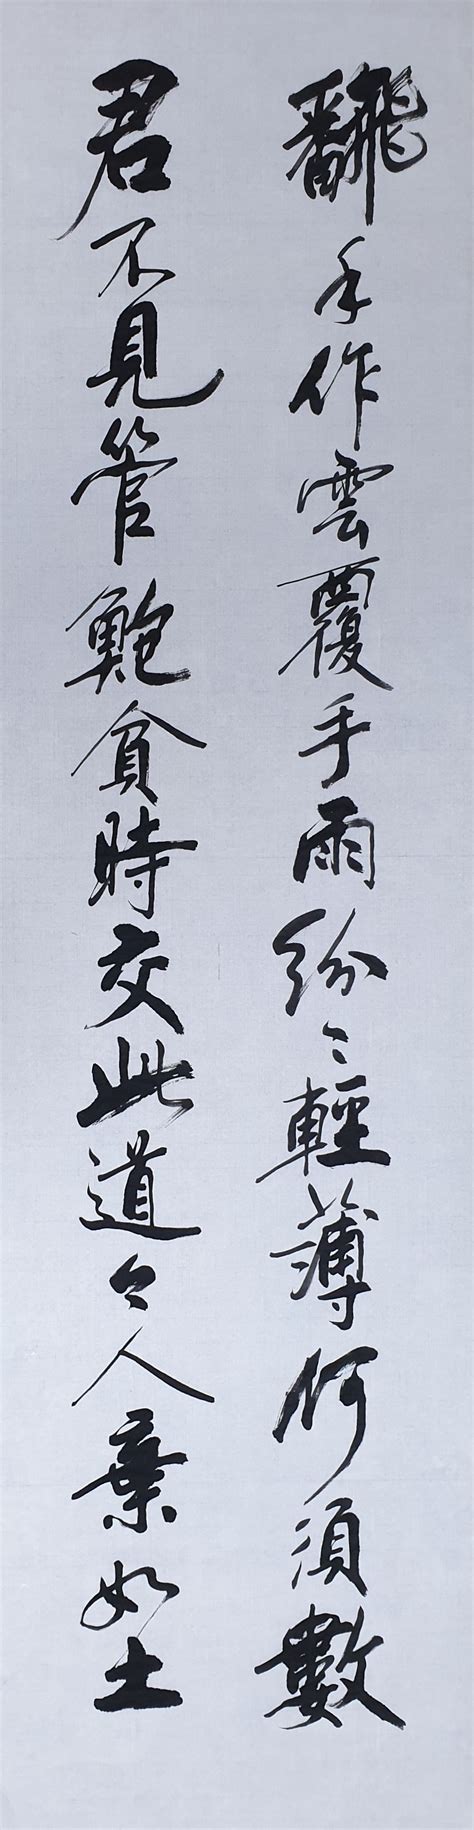 飜手作雲覆手雨紛〻輕薄何須數
君不見管鮑貧時交此道今人棄如土